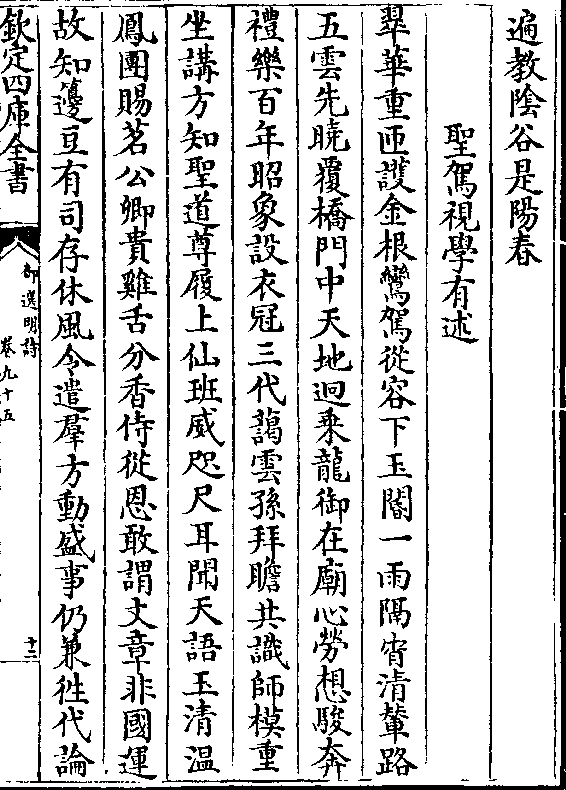 遍教陰谷是陽春
聖駕視學有述
翠華重匝護金根鸞駕從容下玉閽一雨隔宵清輦路
五雲先曉覆橋門中天地迥乘龍御在廟心勞想駿奔
禮樂百年昭象設衣冠三代藹雲孫拜瞻共識師模重
坐講方知聖道尊履上仙班威咫尺耳聞天語玉清温
鳳團賜茗公卿貴雞舌分香侍從恩敢謂文章非國運
故知籩豆有司存休風令遣羣方動盛事仍兼徃代論
欽定四庫全書
御選明詩
卷九十五
十二